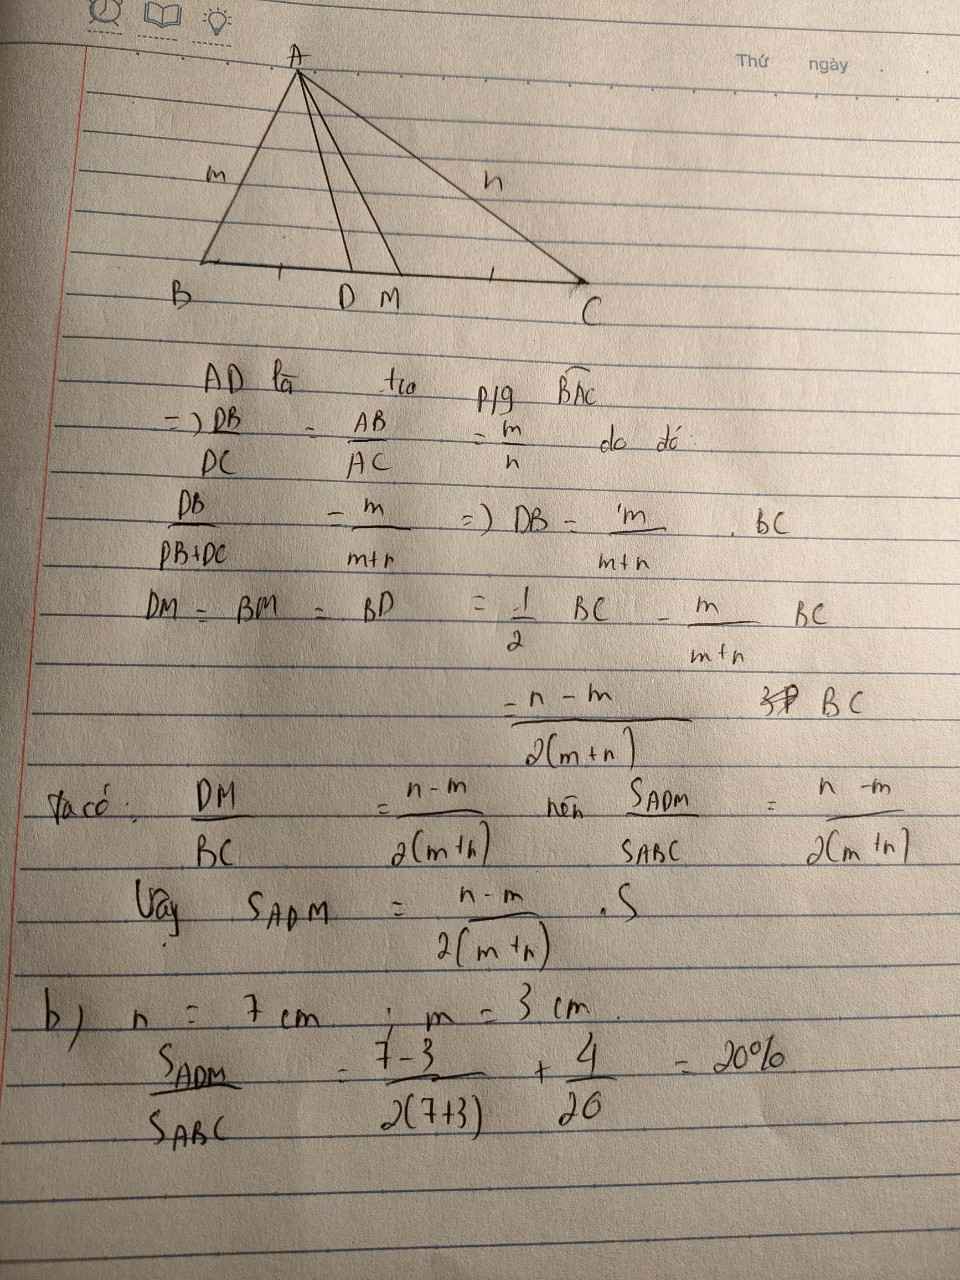 Thứ ngày
A
m n
B D M C
AD là tia p/g BAC
=) DB/DC = AB/AC = m/n do đó
DB/DB+DC = m/m+n =) DB = m/m+n . BC
DM = BM = BD = 1/2 BC - m/m+n BC
= n - m/2(m+n) BC
Ta có: DM/BC = n-m/2(m+n) nên SADM/SABC = n-m/2(m+n)
Vậy SADM = n-m/2(m+n) . S
b) n = 7 cm ; m = 3 cm.
SADM/SABC = 7-3/2(7+3) + 4/20 = 20%